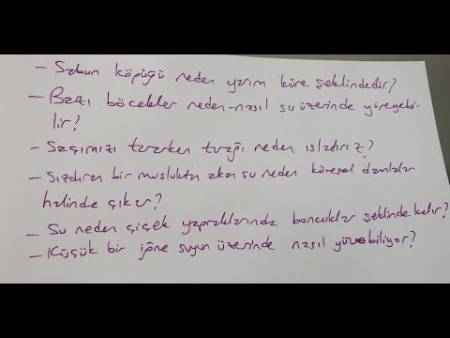 - Sabun köpüğü neden yarım küre şeklindedir?
- Bazı böcekler neden-nasıl su üzerinde yürüyebi-
lir?
- Saçımızı tararken tarağı neden ıslatırız?
- Sızdıran bir musluktan akan su neden küresel damlalar
halinde çıkar?
- Su neden çiçek yapraklarında boncuklar şeklinde kalır?
- Küçük bir iğne suyun üzerinde nasıl yürüyebiliyor?